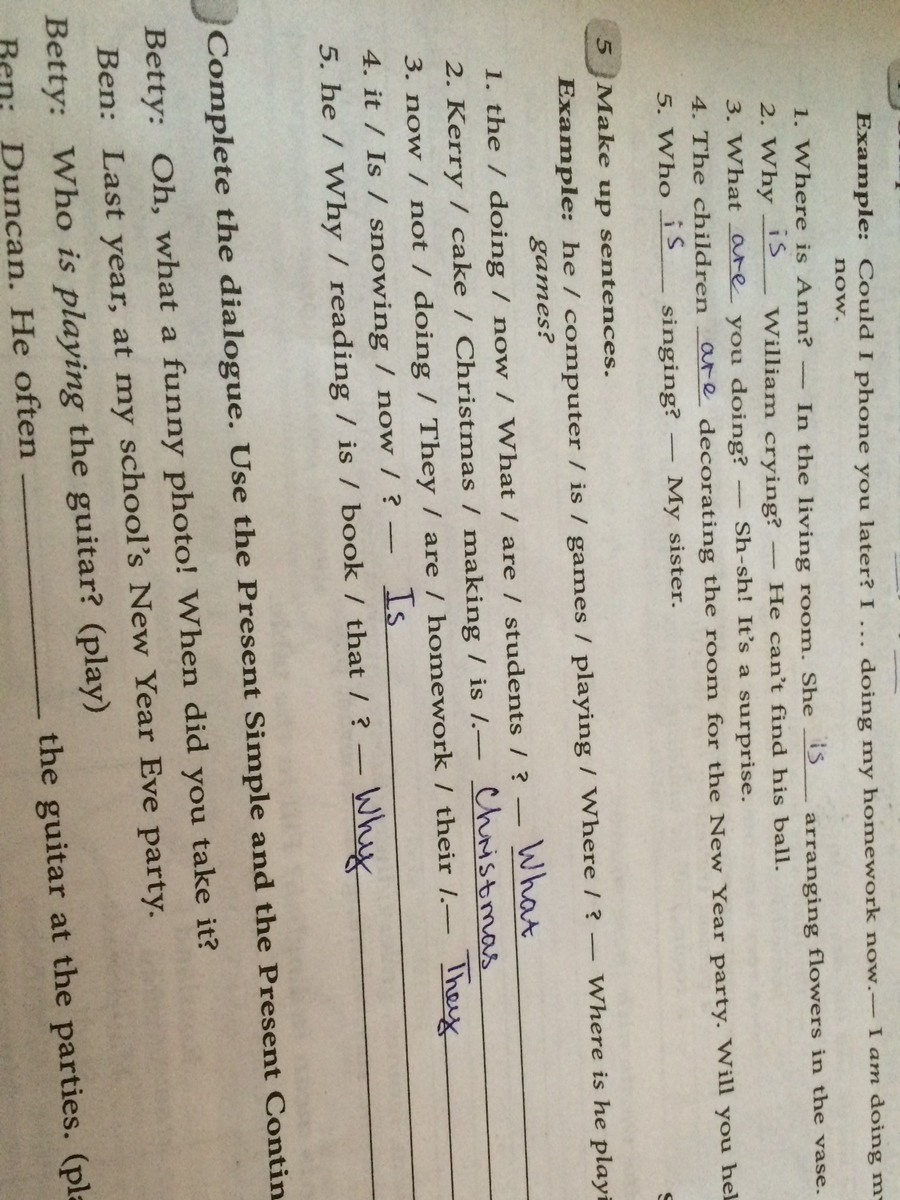 Example: Could I phone you later? I ... doing my homework now.— I am doing
now.
1. Where is Ann? — In the living room. She is arranging flowers in the vase.
2. Why is William crying? — He can't find his ball.
3. What are you doing? — Sh-sh! It's a surprise.
4. The children are decorating the room for the New Year party. Will you
5. Who is singing? — My sister.
5 Make up sentences.
Example: he / computer / is / games / playing / Where / ? — Where is he
games?
1. the / doing / now / What / are / students / ? — What
2. Kerry / cake / Christmas / making / is /.— Christmas
3. now / not / doing / They / are / homework / their /.— They
4. it / Is / snowing / now / ? — Is
5. he / Why / reading / is / book / that / ? — Why
Complete the dialogue. Use the Present Simple and the Present
Betty: Oh, what a funny photo! When did you take it?
Ben: Last year, at my school's New Year Eve party.
Betty: Who is playing the guitar? (play)
Ben: Duncan. He often ______ the guitar at the parties.